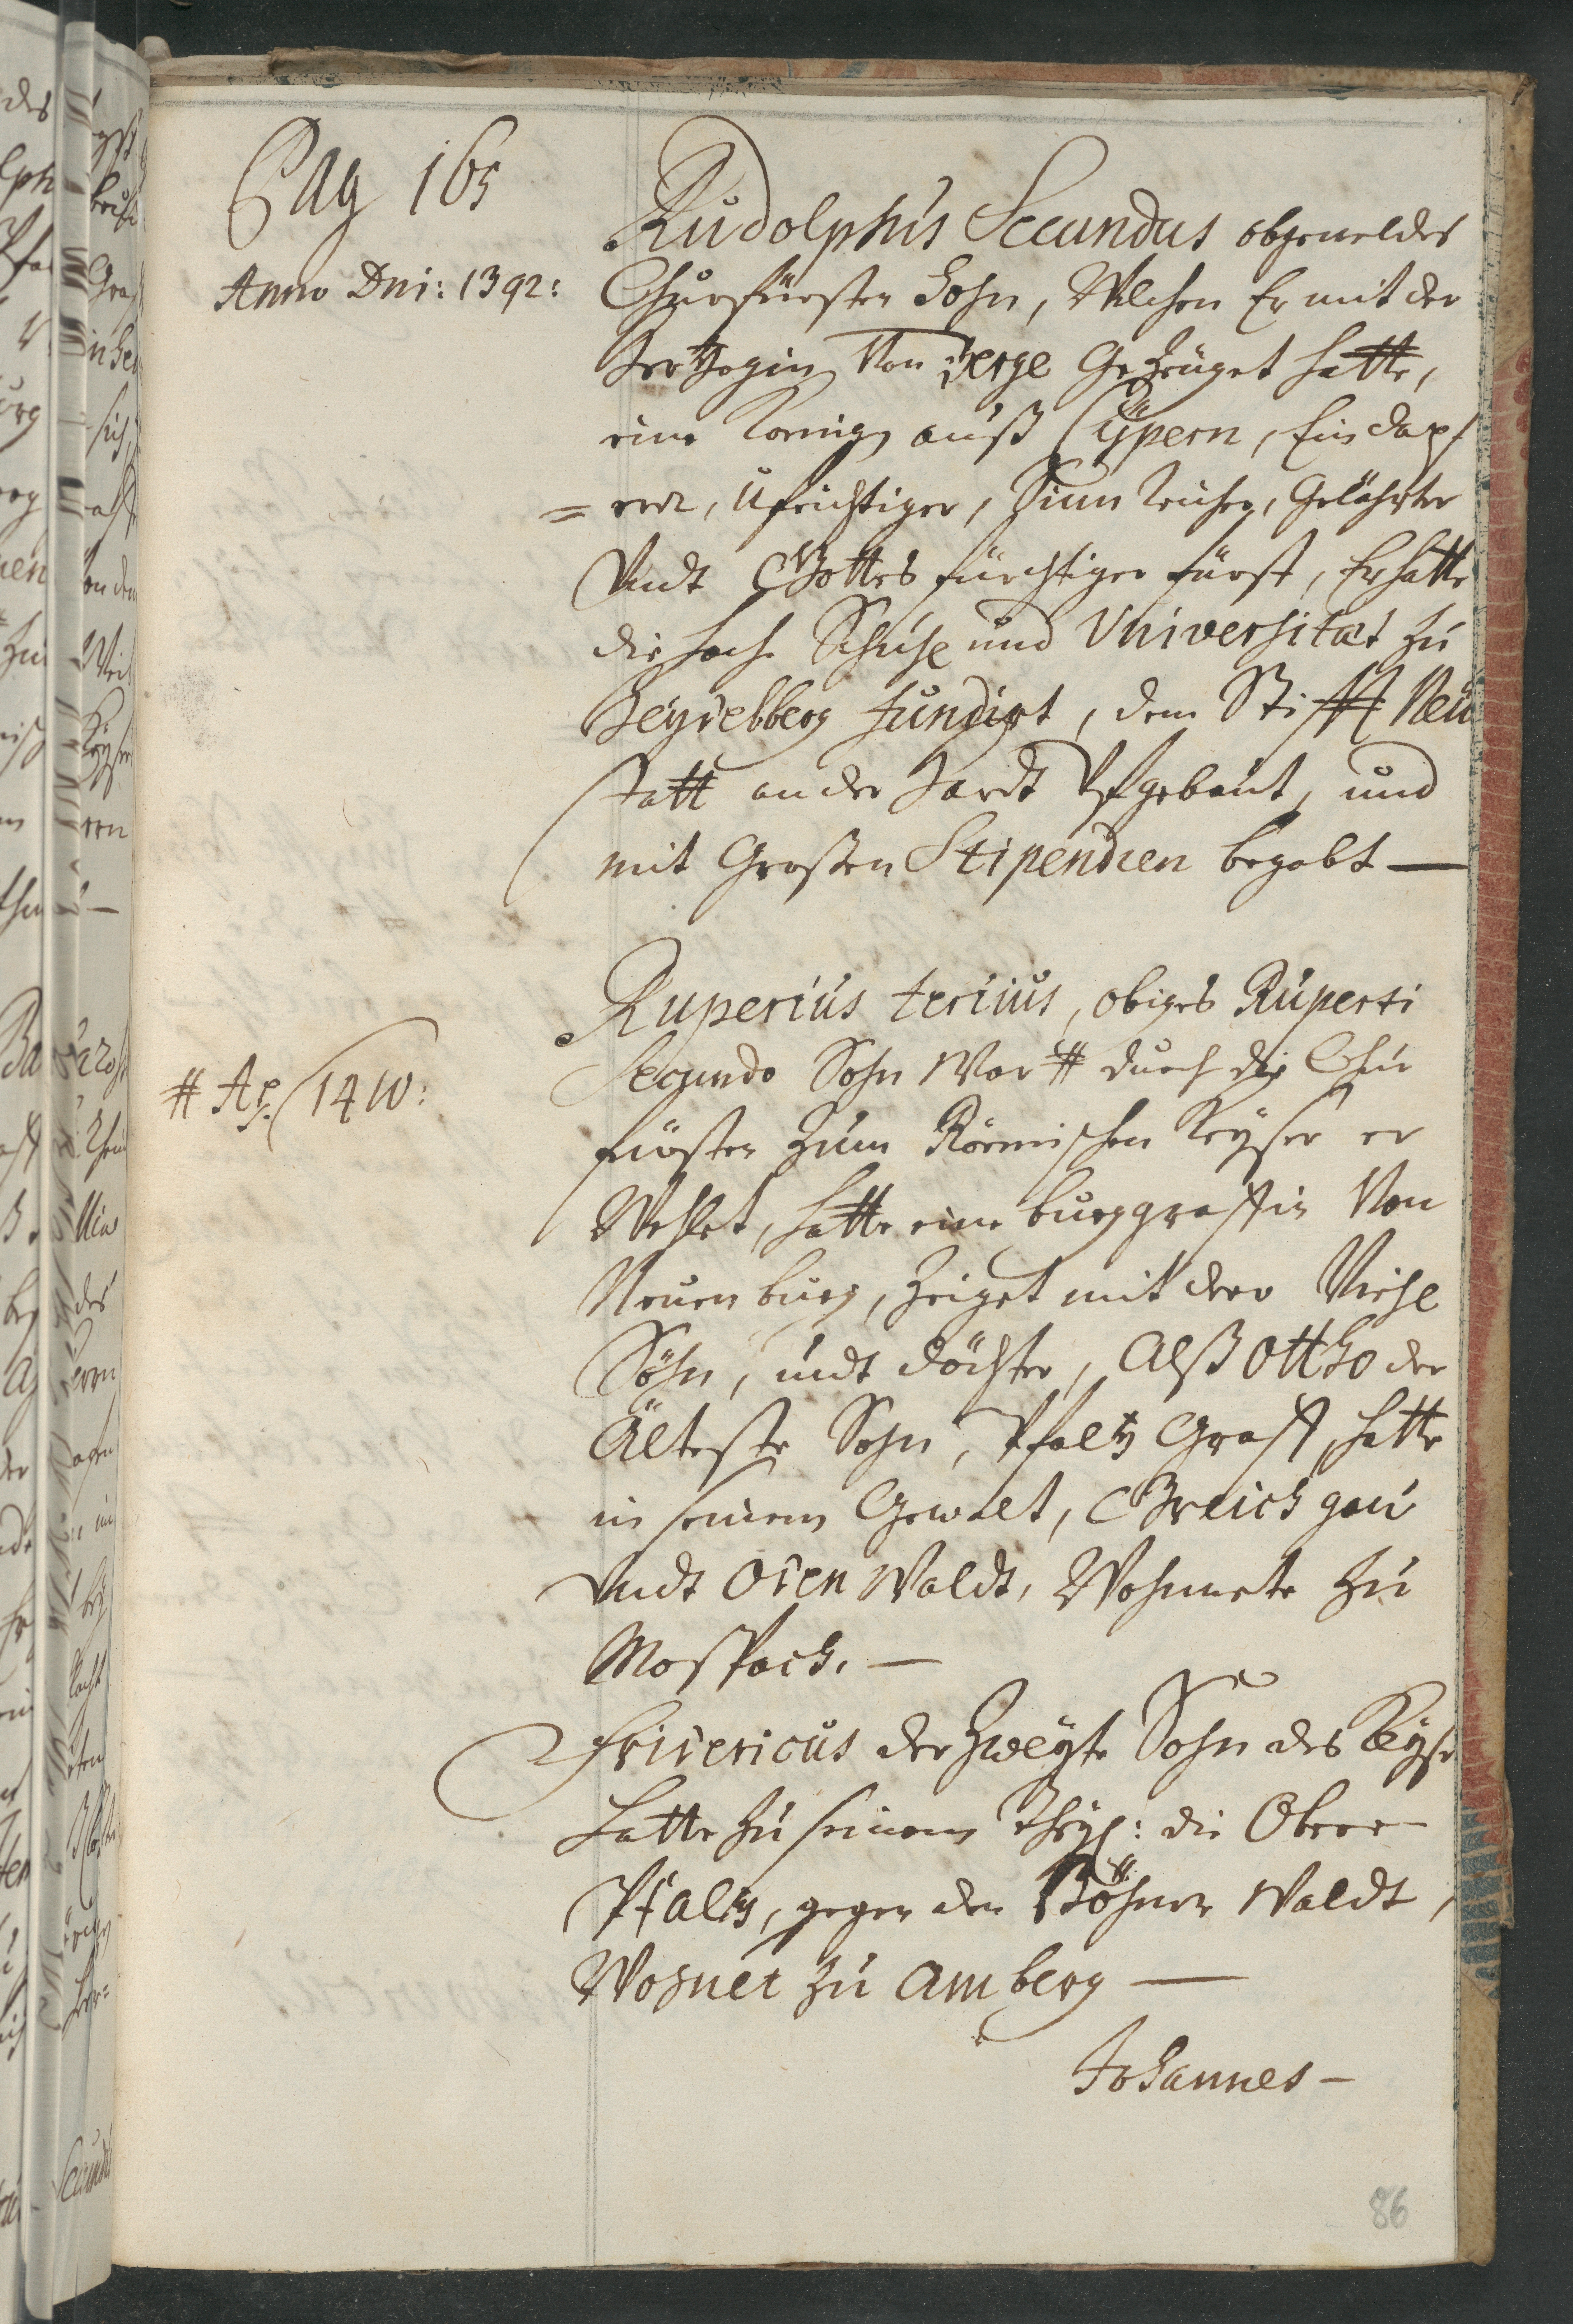 Pag 165
Rudolphus Secundus obgemeldes
Anno Dni: 1392:
Churfürsten Sohn, Welchen Er mit der
Hertzogin Von Berge Gezeuget hatte,
eine Konigin auß Cÿpern, Ein dapf
=erer, Ufrichtiger, Sinn Reicher, Gelährter
Undt Gottes fürchtiger fürst, Er hatte
die hoche Schuhl und Universitæt zu
Heydelberg fundirt, dem Stifft Neu
statt an der Hardt Ufgebaut, und
mit Großen Stipendien begabt —
Rupertus tertius, obiges Ruperti
Secundo Sohn War # durch die Chur
# Ao 1410:
fürsten zum Röemischen Keyser er
Wehlet, hatte eine burggraffin Von
Neuenburg, Zeiget mit derr Viehl
Söhn, undt döchter, Alß Ottho der
Älteste Sohn, Pfaltz Graff, hatte
in seinem Gewalt, Greichgau
Undt Oden Waldt, Wohnnete zu
Mosspach. —
Fridericus der Zweyte Sohn des Keyse
Hatte zu seinem Theyl: die Obere
Pfaltz, gegen den Böhmer Waldt,
Wohnet zu Amberg —
Johannes —
86